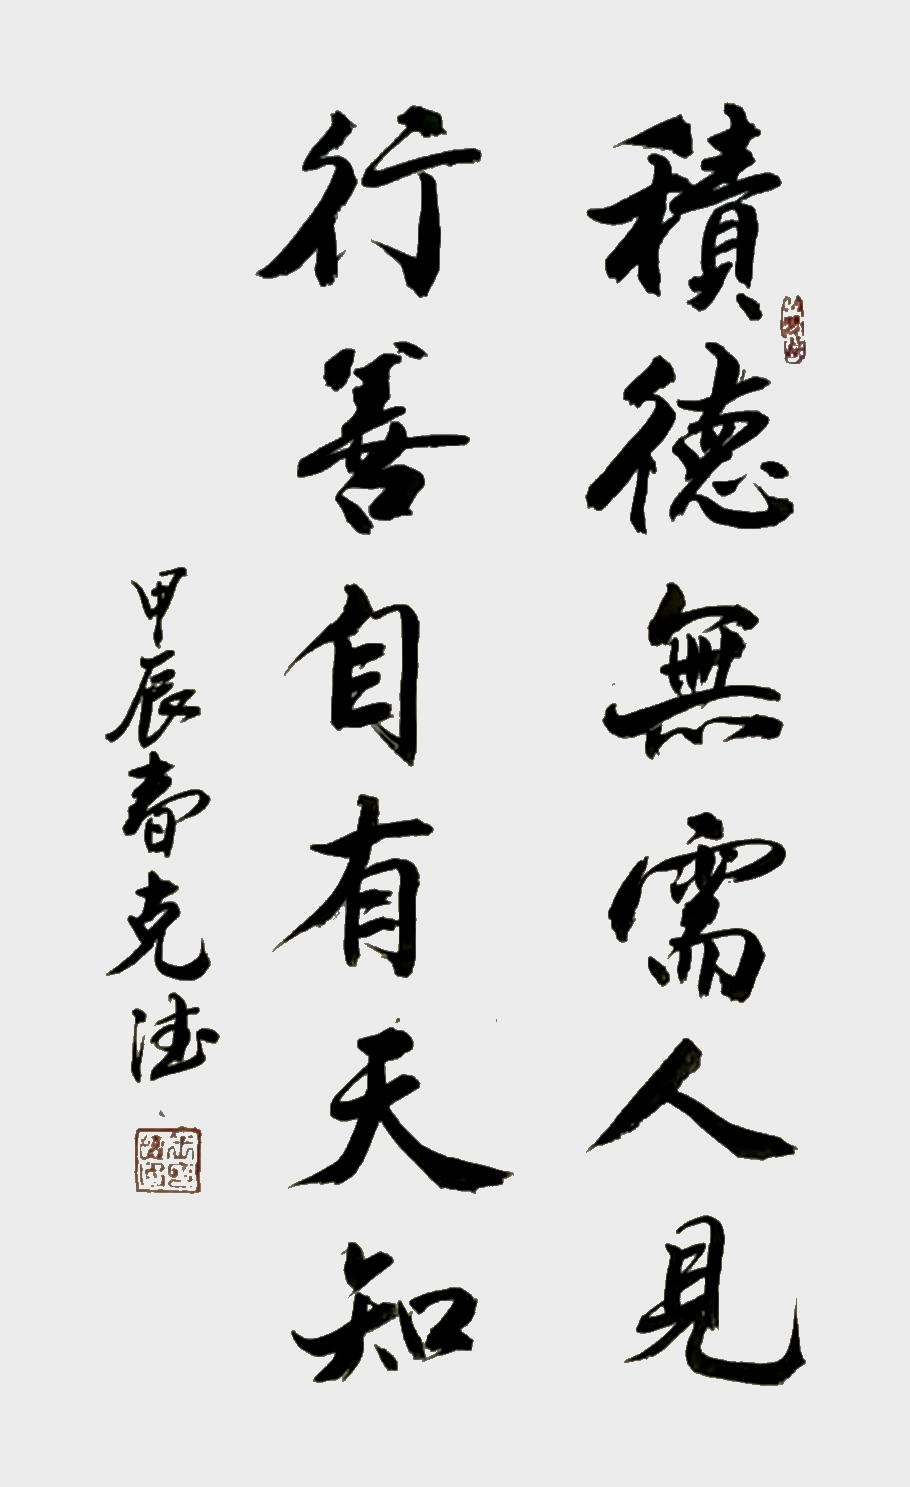 積德無需人見
行善自有天知
甲辰春克德